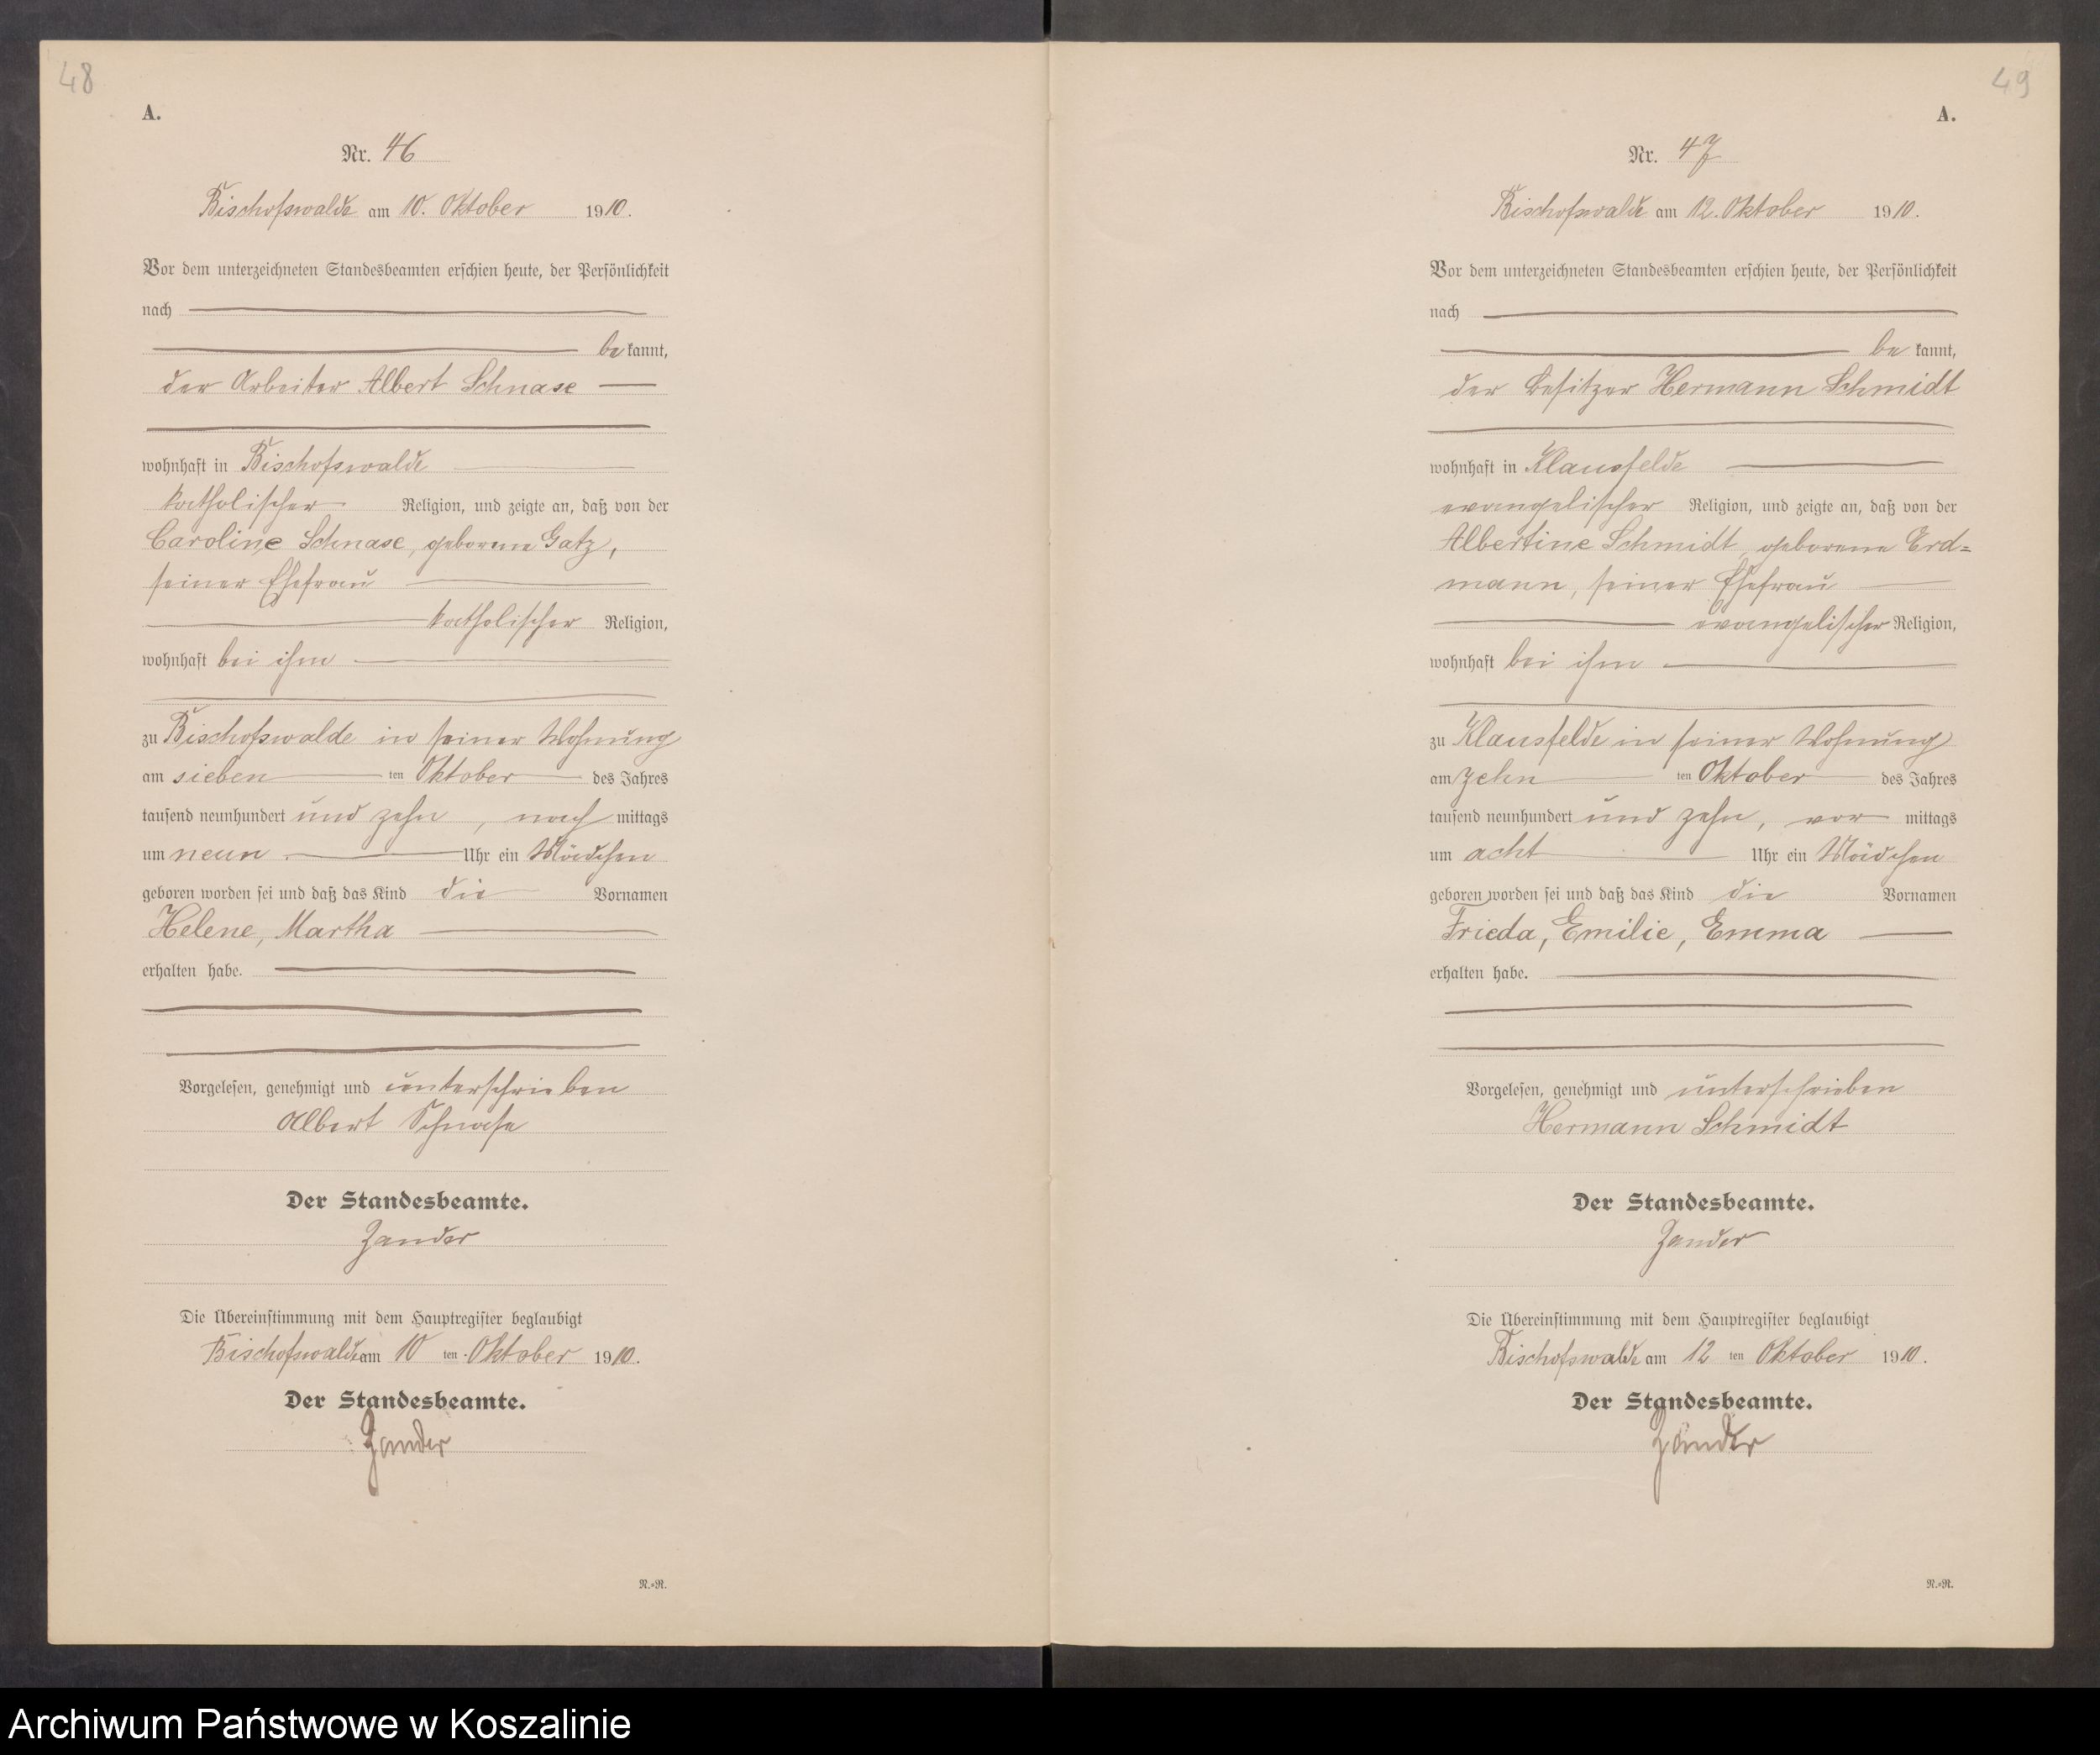 48
A.
Nr. 46
Bischofswalde am 10. Oktober 1910.
Vor dem unterzeichneten Standesbeamten erschien heute, der Persönlichkeit
nach
be kannt,
der Arbeiter Albert Schnase
wohnhaft in Bischofswalde
katholischer Religion, und zeigte an, daß von der
Caroline Schnase, geborene Gatz,
seiner Ehefrau
katholischer Religion,
wohnhaft bei ihm
zu Bischofswalde in seiner Wohnung
am sieben ten Oktober des Jahres
tausend neunhundert und zehn, nach mittags
um neun Uhr ein Mädchen
geboren worden sei und daß das Kind die Vornamen
Helene, Martha
erhalten habe.
Vorgelesen, genehmigt und unterschrieben
Albert Schnase
Der Standesbeamte.
Zander
Die Übereinstimmung mit dem Hauptregister beglaubigt
Bischofswalde am 10 ten Oktober 1910.
Der Standesbeamte.
Zander
N.-R.
49
A.
Nr. 47
Bischofswalde am 12. Oktober 1910.
Vor dem unterzeichneten Standesbeamten erschien heute, der Persönlichkeit
nach
be kannt,
der Besitzer Hermann Schmidt
wohnhaft in Klausfelde
evangelischer Religion, und zeigte an, daß von der
Albertine Schmidt, geborene Erd=
mann, seiner Ehefrau
evangelischer Religion,
wohnhaft bei ihm
zu Klausfelde in seiner Wohnung
am zehn ten Oktober des Jahres
tausend neunhundert und zehn, vor mittags
um acht Uhr ein Mädchen
geboren worden sei und daß das Kind die Vornamen
Frieda, Emilie, Emma
erhalten habe.
Vorgelesen, genehmigt und unterschrieben
Hermann Schmidt
Der Standesbeamte.
Zander
Die Übereinstimmung mit dem Hauptregister beglaubigt
Bischofswalde am 12 ten Oktober 1910.
Der Standesbeamte.
Zander
N.-R.
Archiwum Państwowe w Koszalinie